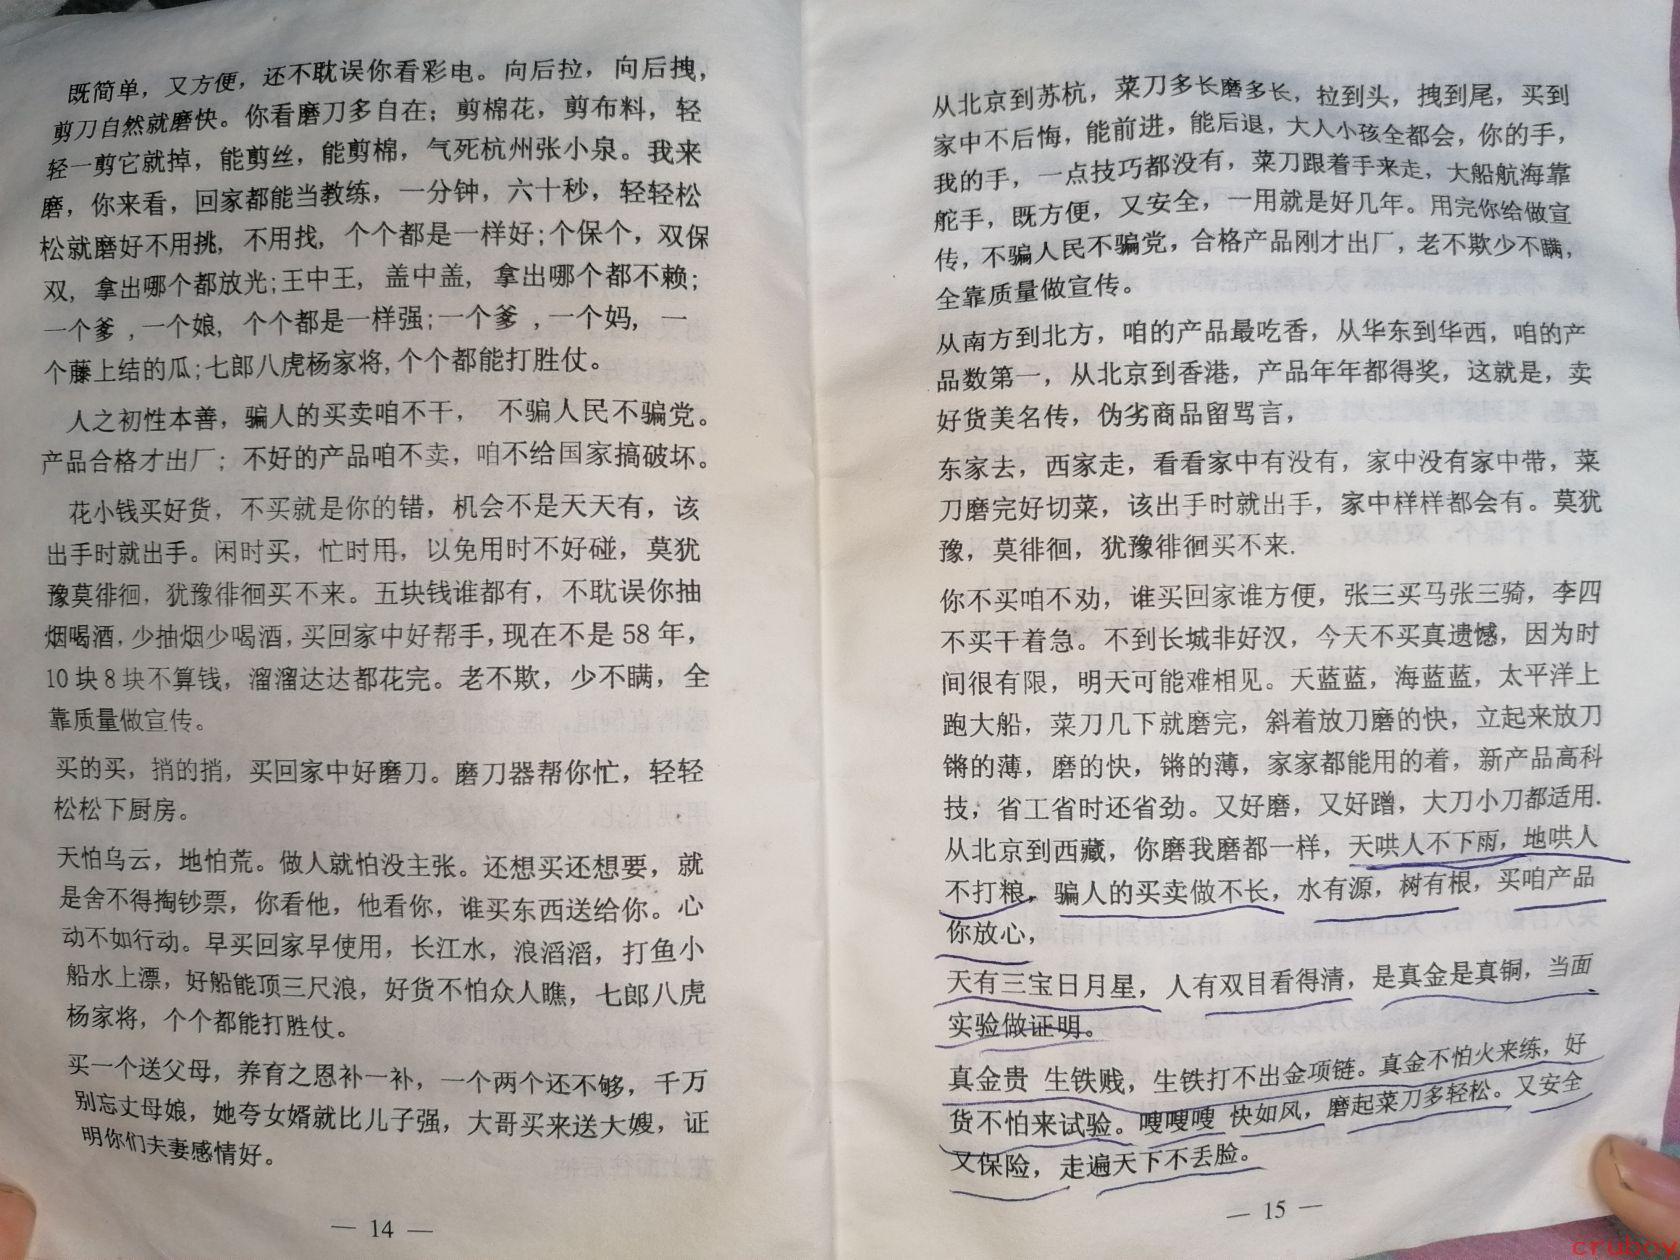 既简单，又方便，还不耽误你看彩电。向后拉，向后拽，
剪刀自然就磨快。你看磨刀多自在；剪棉花，剪布料，轻
轻一剪它就掉，能剪丝，能剪棉，气死杭州张小泉。我来
磨，你来看，回家都能当教练，一分钟，六十秒，轻轻松
松就磨好不用挑, 不用找，个个都是一样好;个保个，双保
双，拿出哪个都放光;王中王, 盖中盖，拿出哪个都不赖;
一个爹 ,一个娘, 个个都是一样强;一个爹 ,一个妈，一
个藤上结的瓜;七郎八虎杨家将,个个都能打胜仗。
人之初性本善，骗人的买卖咱不干， 不骗人民不骗党。
产品合格才出厂；不好的产品咱不卖，咱不给国家搞破坏。
花小钱买好货，不买就是你的错，机会不是天天有，该
出手时就出手。闲时买，忙时用，以免用时不好碰，莫犹
豫莫徘徊，犹豫徘徊买不来。五块钱谁都有，不耽误你抽
烟喝酒,少抽烟少喝酒,买回家中好帮手,现在不是 58 年，
10 块 8 块不算钱，溜溜达达都花完。老不欺，少不瞒，全
靠质量做宣传。
买的买，捎的捎，买回家中好磨刀。磨刀器帮你忙，轻轻
松松下厨房。
天怕乌云，地怕荒。做人就怕没主张。还想买还想要，就
是舍不得掏钞票，你看他，他看你，谁买东西送给你。心
动不如行动。早买回家早使用，长江水，浪滔滔，打鱼小
船水上漂，好船能顶三尺浪，好货不怕众人瞧，七郎八虎
杨家将，个个都能打胜仗。
买一个送父母，养育之恩补一补，一个两个还不够，千万
别忘丈母娘，她夸女婿就比儿子强，大哥买来送大嫂，证
明你们夫妻感情好。
— 14 —
从北京到苏杭，菜刀多长磨多长，拉到头，拽到尾，买到
家中不后悔，能前进，能后退，大人小孩全都会，你的手，
我的手，一点技巧都没有，菜刀跟着手来走，大船航海靠
舵手，既方便，又安全，一用就是好几年。用完你给做宣
传，不骗人民不骗党，合格产品刚才出厂，老不欺少不瞒，
全靠质量做宣传。
从南方到北方，咱的产品最吃香，从华东到华西，咱的产
品数第一，从北京到香港，产品年年都得奖，这就是，卖
好货美名传，伪劣商品留骂言，
东家去，西家走，看看家中有没有，家中没有家中带，菜
刀磨完好切菜，该出手时就出手，家中样样都会有。莫犹
豫，莫徘徊，犹豫徘徊买不来.
你不买咱不劝，谁买回家谁方便，张三买马张三骑，李四
不买干着急。不到长城非好汉，今天不买真遗憾，因为时
间很有限，明天可能难相见。天蓝蓝，海蓝蓝，太平洋上
跑大船，菜刀几下就磨完，斜着放刀磨的快，立起来放刀
锵的薄，磨的快，锵的薄，家家都能用的着，新产品高科
技，省工省时还省劲。又好磨，又好蹭，大刀小刀都适用.
从北京到西藏，你磨我磨都一样，天哄人不下雨，地哄人
不打粮，骗人的买卖做不长，水有源，树有根，买咱产品
你放心，
天有三宝日月星，人有双目看得清，是真金是真铜，当面
实验做证明。
真金贵 生铁贱，生铁打不出金项链。真金不怕火来练，好
货不怕来试验。嗖嗖嗖 快如风，磨起菜刀多轻松。又安全
又保险，走遍天下不丢脸。
— 15 —
cruboy